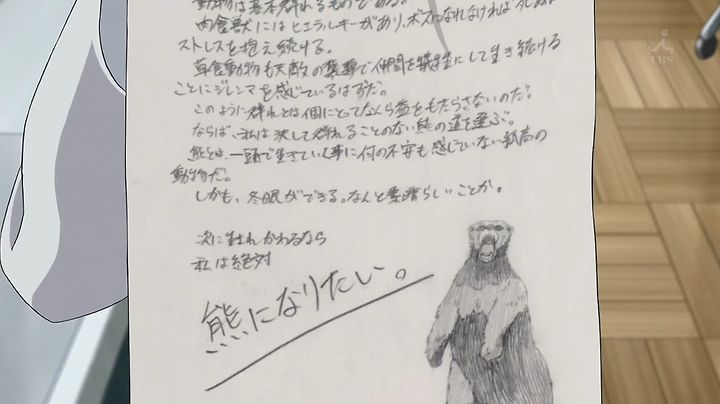 動物は基本群れるものである。
肉食獣にはヒエラルキーがあり、ボスになれなければ死ぬまで
ストレスを抱え続ける。
草食動物も天敵の襲撃で仲間を犠牲にして生き続ける
ことにジレンマを感じているはずだ。
このように群れとは個にとってなんら益をもたらさないのだ。
ならば、私は決して群れることのない熊の道を選ぶ。
熊とは、一頭で生きていく事に何の不安も感じていない孤高の
動物だ。
しかも、冬眠ができる。なんと素晴らしいことか。
次に生まれかわるなら
私は絶対
熊になりたい。
TBS